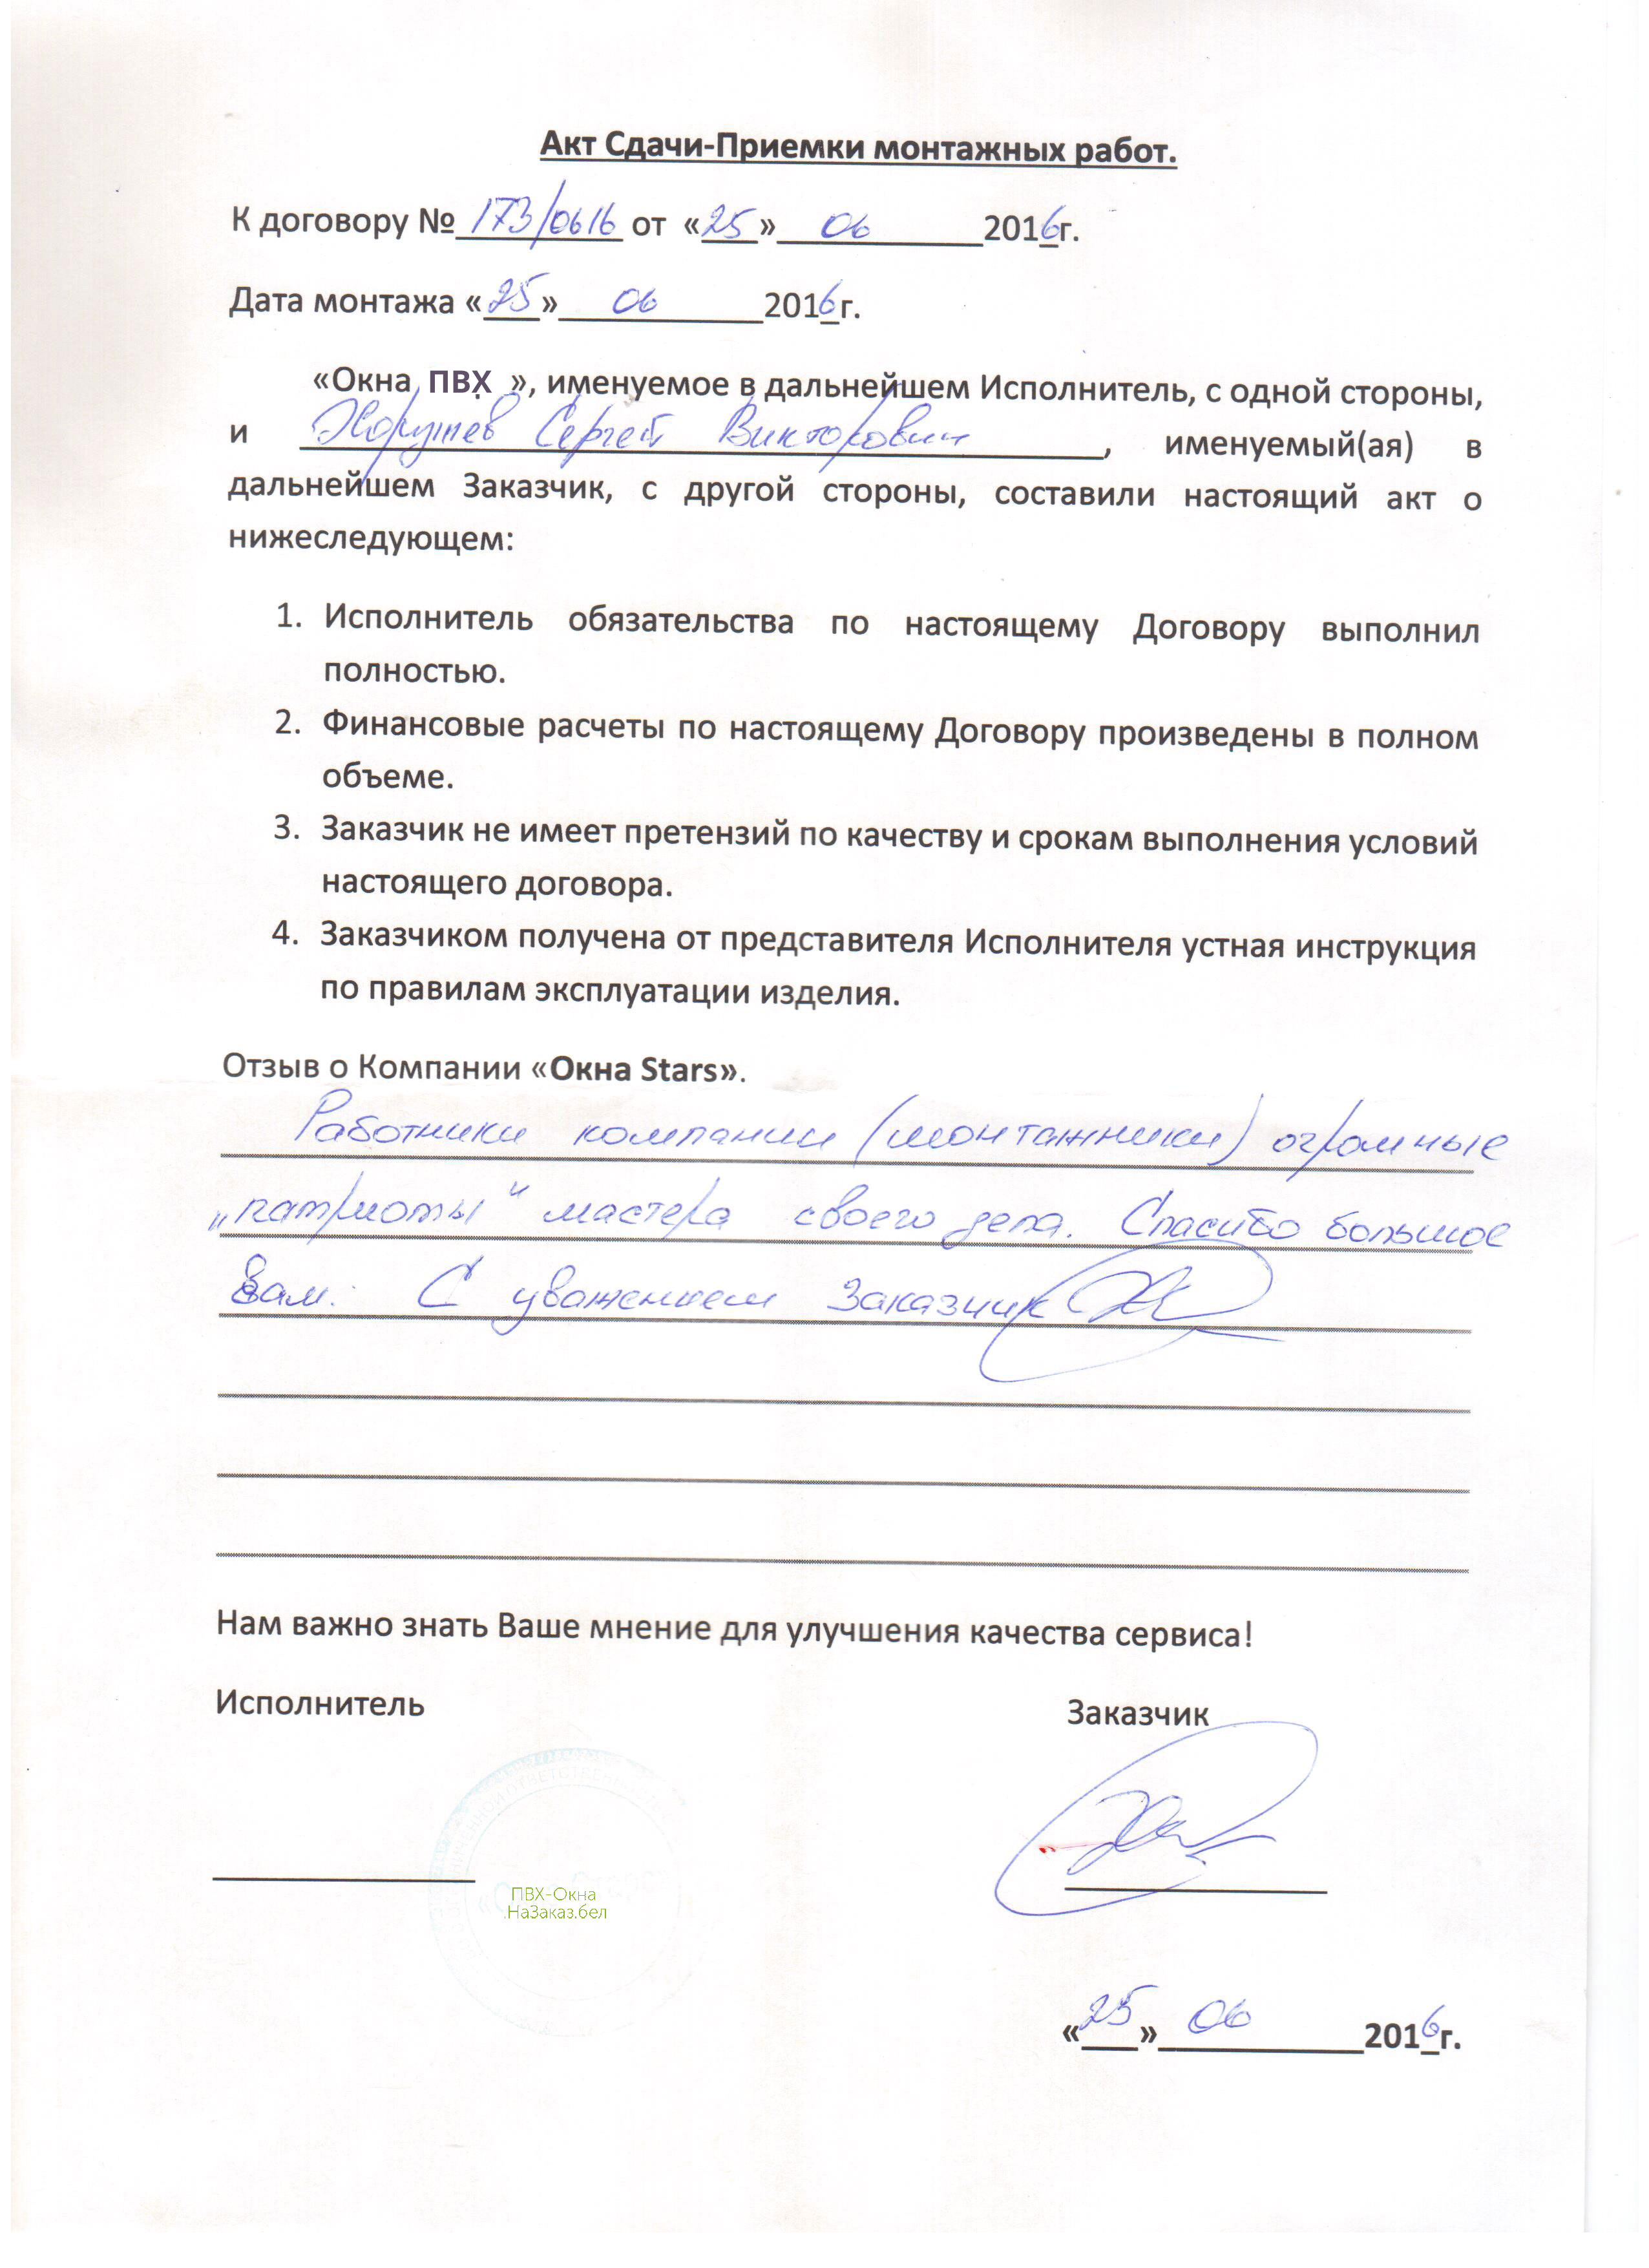 Акт Сдачи-Приемки монтажных работ.
К договору № 173/0616 от «25» 06 2016г.
Дата монтажа «25» 06 2016г.
«Окна ПВХ », именуемое в дальнейшем Исполнитель, с одной стороны,
и Сергей Викторович, именуемый(ая) в
дальнейшем Заказчик, с другой стороны, составили настоящий акт о
нижеследующем:
1. Исполнитель обязательства по настоящему Договору выполнил
полностью.
2. Финансовые расчеты по настоящему Договору произведены в полном
объеме.
3. Заказчик не имеет претензий по качеству и срокам выполнения условий
настоящего договора.
4. Заказчиком получена от представителя Исполнителя устная инструкция
по правилам эксплуатации изделия.
Отзыв о Компании «Окна Stars».
Работники компании (монтажники) огромные
„патриоты“ мастера своего дела. Спасибо большое
Вам. С уважением Заказчик
Нам важно знать Ваше мнение для улучшения качества сервиса!
Исполнитель Заказчик
ПВХ-Окна
.НаЗаказ.бел
«25» 06 2016г.